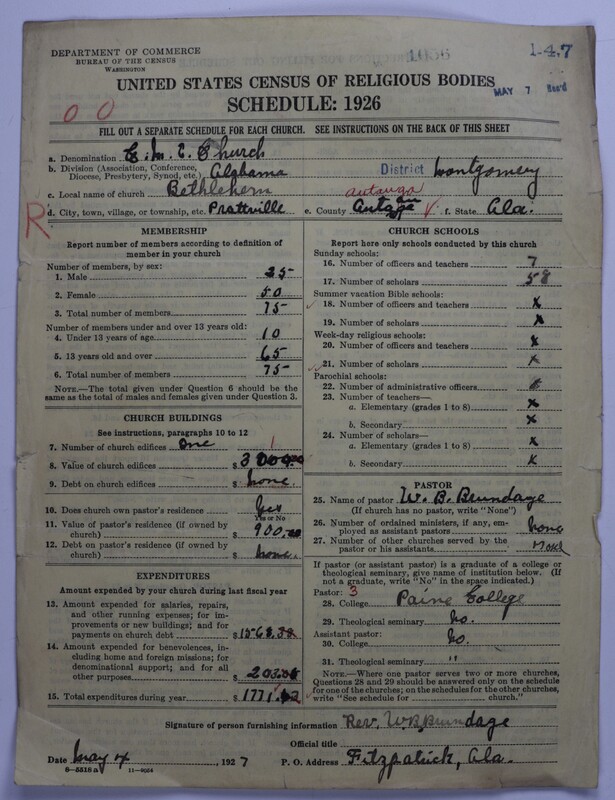 DEPARTMENT OF COMMERCE
BUREAU OF THE CENSUS
WASHINGTON
1036
1-4.7
MAY 7 Rec'd
UNITED STATES CENSUS OF RELIGIOUS BODIES
SCHEDULE: 1926
FILL OUT A SEPARATE SCHEDULE FOR EACH CHURCH. SEE INSTRUCTIONS ON THE BACK OF THIS SHEET
00
a. Denomination C. M. E. Church
b. Division (Association, Conference, Diocese, Presbytery, Synod, etc.) Alabama District Montgomery
c. Local name of church Bethlehem
autauga
R
d. City, town, village, or township, etc. Prattville e. County Autauga f. State Ala.
MEMBERSHIP
Report number of members according to definition of
member in your church
Number of members, by sex:
1. Male 25
2. Female 50
3. Total number of members 75
Number of members under and over 13 years old:
4. Under 13 years of age 10
5. 13 years old and over 65
6. Total number of members 75
NOTE.—The total given under Question 6 should be
same as the total of males and females given under Question 3.
CHURCH BUILDINGS
See instructions, paragraphs 10 to 12
7. Number of church edifices One 1
8. Value of church edifices $ 3000.00
9. Debt on church edifices $ none.
10. Does church own pastor's residence Yes
Yes or No
11. Value of pastor's residence (if owned by
church) $ 900.00
12. Debt on pastor's residence (if owned by
church) $ none.
EXPENDITURES
Amount expended by your church during last fiscal year
13. Amount expended for salaries, repairs,
and other running expenses; for im-
provements or new buildings; and for
payments on church debt $ 1568.32
14. Amount expended for benevolences,
including home and foreign missions; for
denominational support; and for all
other purposes $ 203.00
15. Total expenditures during year $ 1771.32
CHURCH SCHOOLS
Report here only schools conducted by this church
Sunday schools:
16. Number of officers and teachers 7
17. Number of scholars 58
Summer vacation Bible schools:
18. Number of officers and teachers x
19. Number of scholars x
Week-day religious schools:
20. Number of officers and teachers x
21. Number of scholars x
Parochial schools:
22. Number of administrative officers
23. Number of teachers—
a. Elementary (grades 1 to 8) x
b. Secondary x
24. Number of scholars—
a. Elementary (grades 1 to 8) x
b. Secondary x
PASTOR
25. Name of pastor W. B. Brundage
(If church has no pastor, write "None")
26. Number of ordained ministers, if any, em-
ployed as assistant pastors none
27. Number of other churches served by the
pastor or his assistants none
If pastor (or assistant pastor) is a graduate of a college or
theological seminary, give name of institution below. (If
not a graduate, write "No" in the space indicated.)
Pastor: 3
28. College Paine College
29. Theological seminary No.
Assistant pastor:
30. College No.
31. Theological seminary "
NOTE.—Where one pastor serves two or more churches,
Questions 28 and 29 should be answered only on the schedule
for one of the churches; on the schedules for the other churches,
write "See schedule for church."
Signature of person furnishing information Rev. W.B. Brundage
Official title
Date May 4, 1927 P. O. Address Fitzpatrick, Ala.
8-5518a 11-9054